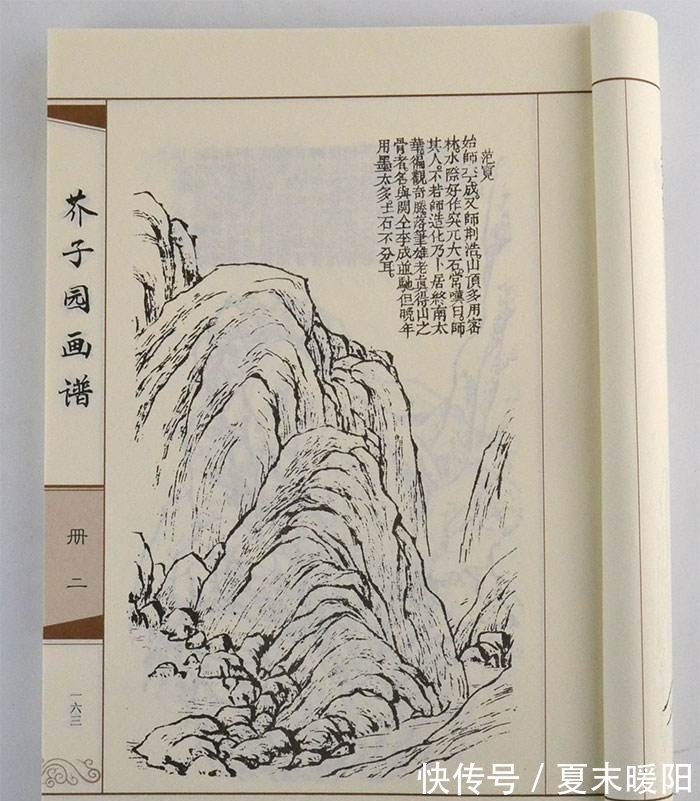 范寬
始師李成。又師荆浩。山頂多用密
林。水際好作突兀大石。常嘆曰。師
其人。不若師造化。乃卜居終南太
華。徧觀奇勝。落筆雄老。眞得山之
骨者。名與関仝李成並馳。但晚年
用墨太多。土石不分耳。
芥子园画谱
册二
一六三
快传号 / 夏末暖阳